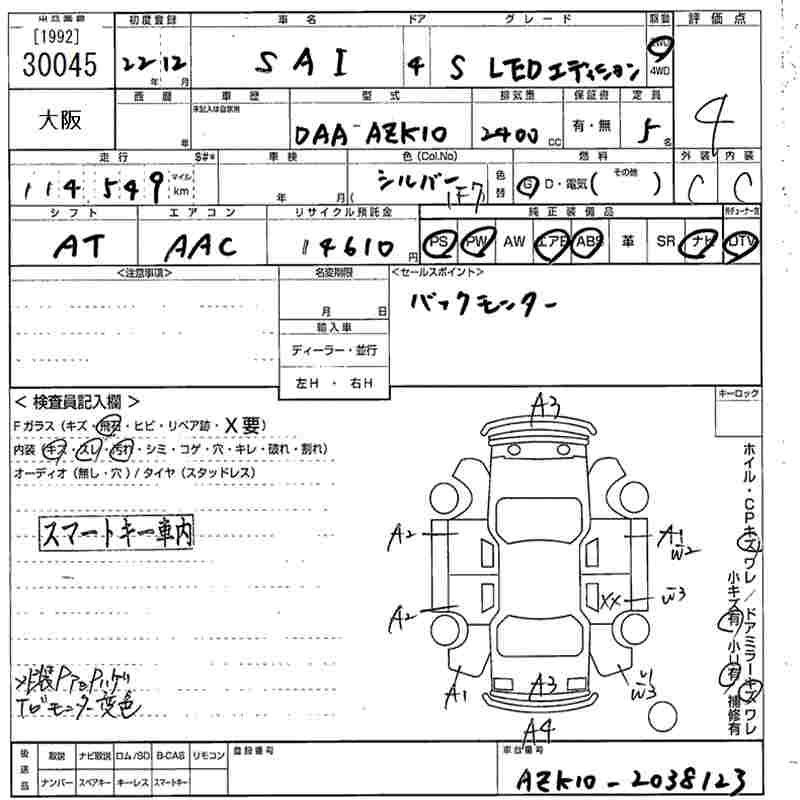 [1992]
30045
大阪
初度登録
22 12
年 月
車名
SAI
ドア
4
グレード
S LEDエディション
駆動
2WD
4WD
評価点
4
西暦
年
車歴
未記入は自家用
型式
DAA-AZK10
排気量
2400
CC
保証書
有・無
定員
5
名
走行
S#*
114549
マイル
km
車検
年 月(
色(Col.No)
シルバー
1F7
色替
燃料
G D・電気( その他 )
外装
C
内装
C
シフト
AT
エアコン
AAC
リサイクル預託金
14610
円
純正装備品
PS PW AW エアB ABS 革 SR ナビ DTV
<注意事項>
名変期限
月 日
輸入車
ディーラー・並行
左H・右H
<セールスポイント>
バックモニター
<検査員記入欄>
Fガラス(キズ・飛石・ヒビ・リペア跡・X要)
内装(キズ・スレ・汚れ・シミ・コゲ・穴・キレ・破れ・割れ)
オーディオ(無し・穴)/タイヤ(スタッドレス)
スマートキー車内
TVモニター変色
キーロック
ホイル・CPキズワレ/ドアミラーキズワレ
小キズ有/小U有 補修有
A3
A2
A1
W2
A2
XX
W3
A1
A3
U1
W3
A4
後送品
取説 ナビ取説 ロム/SD B-CAS リモコン
ナンバー スペアキー キーレス スマートキー
登録番号
車台番号
AZK10-2038123